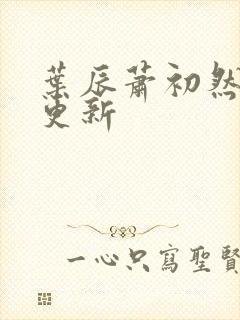 葉辰蕭初然
更新
一心只寫聖賢